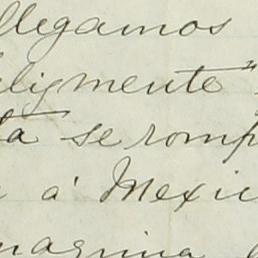 llegamos
lizmente"
ta se romp
á Mexic
magina